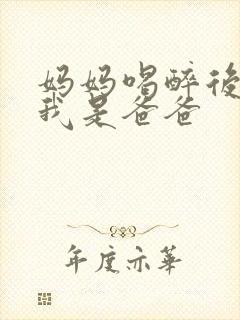 妈妈喝醉後
我是爸爸
年度亦華